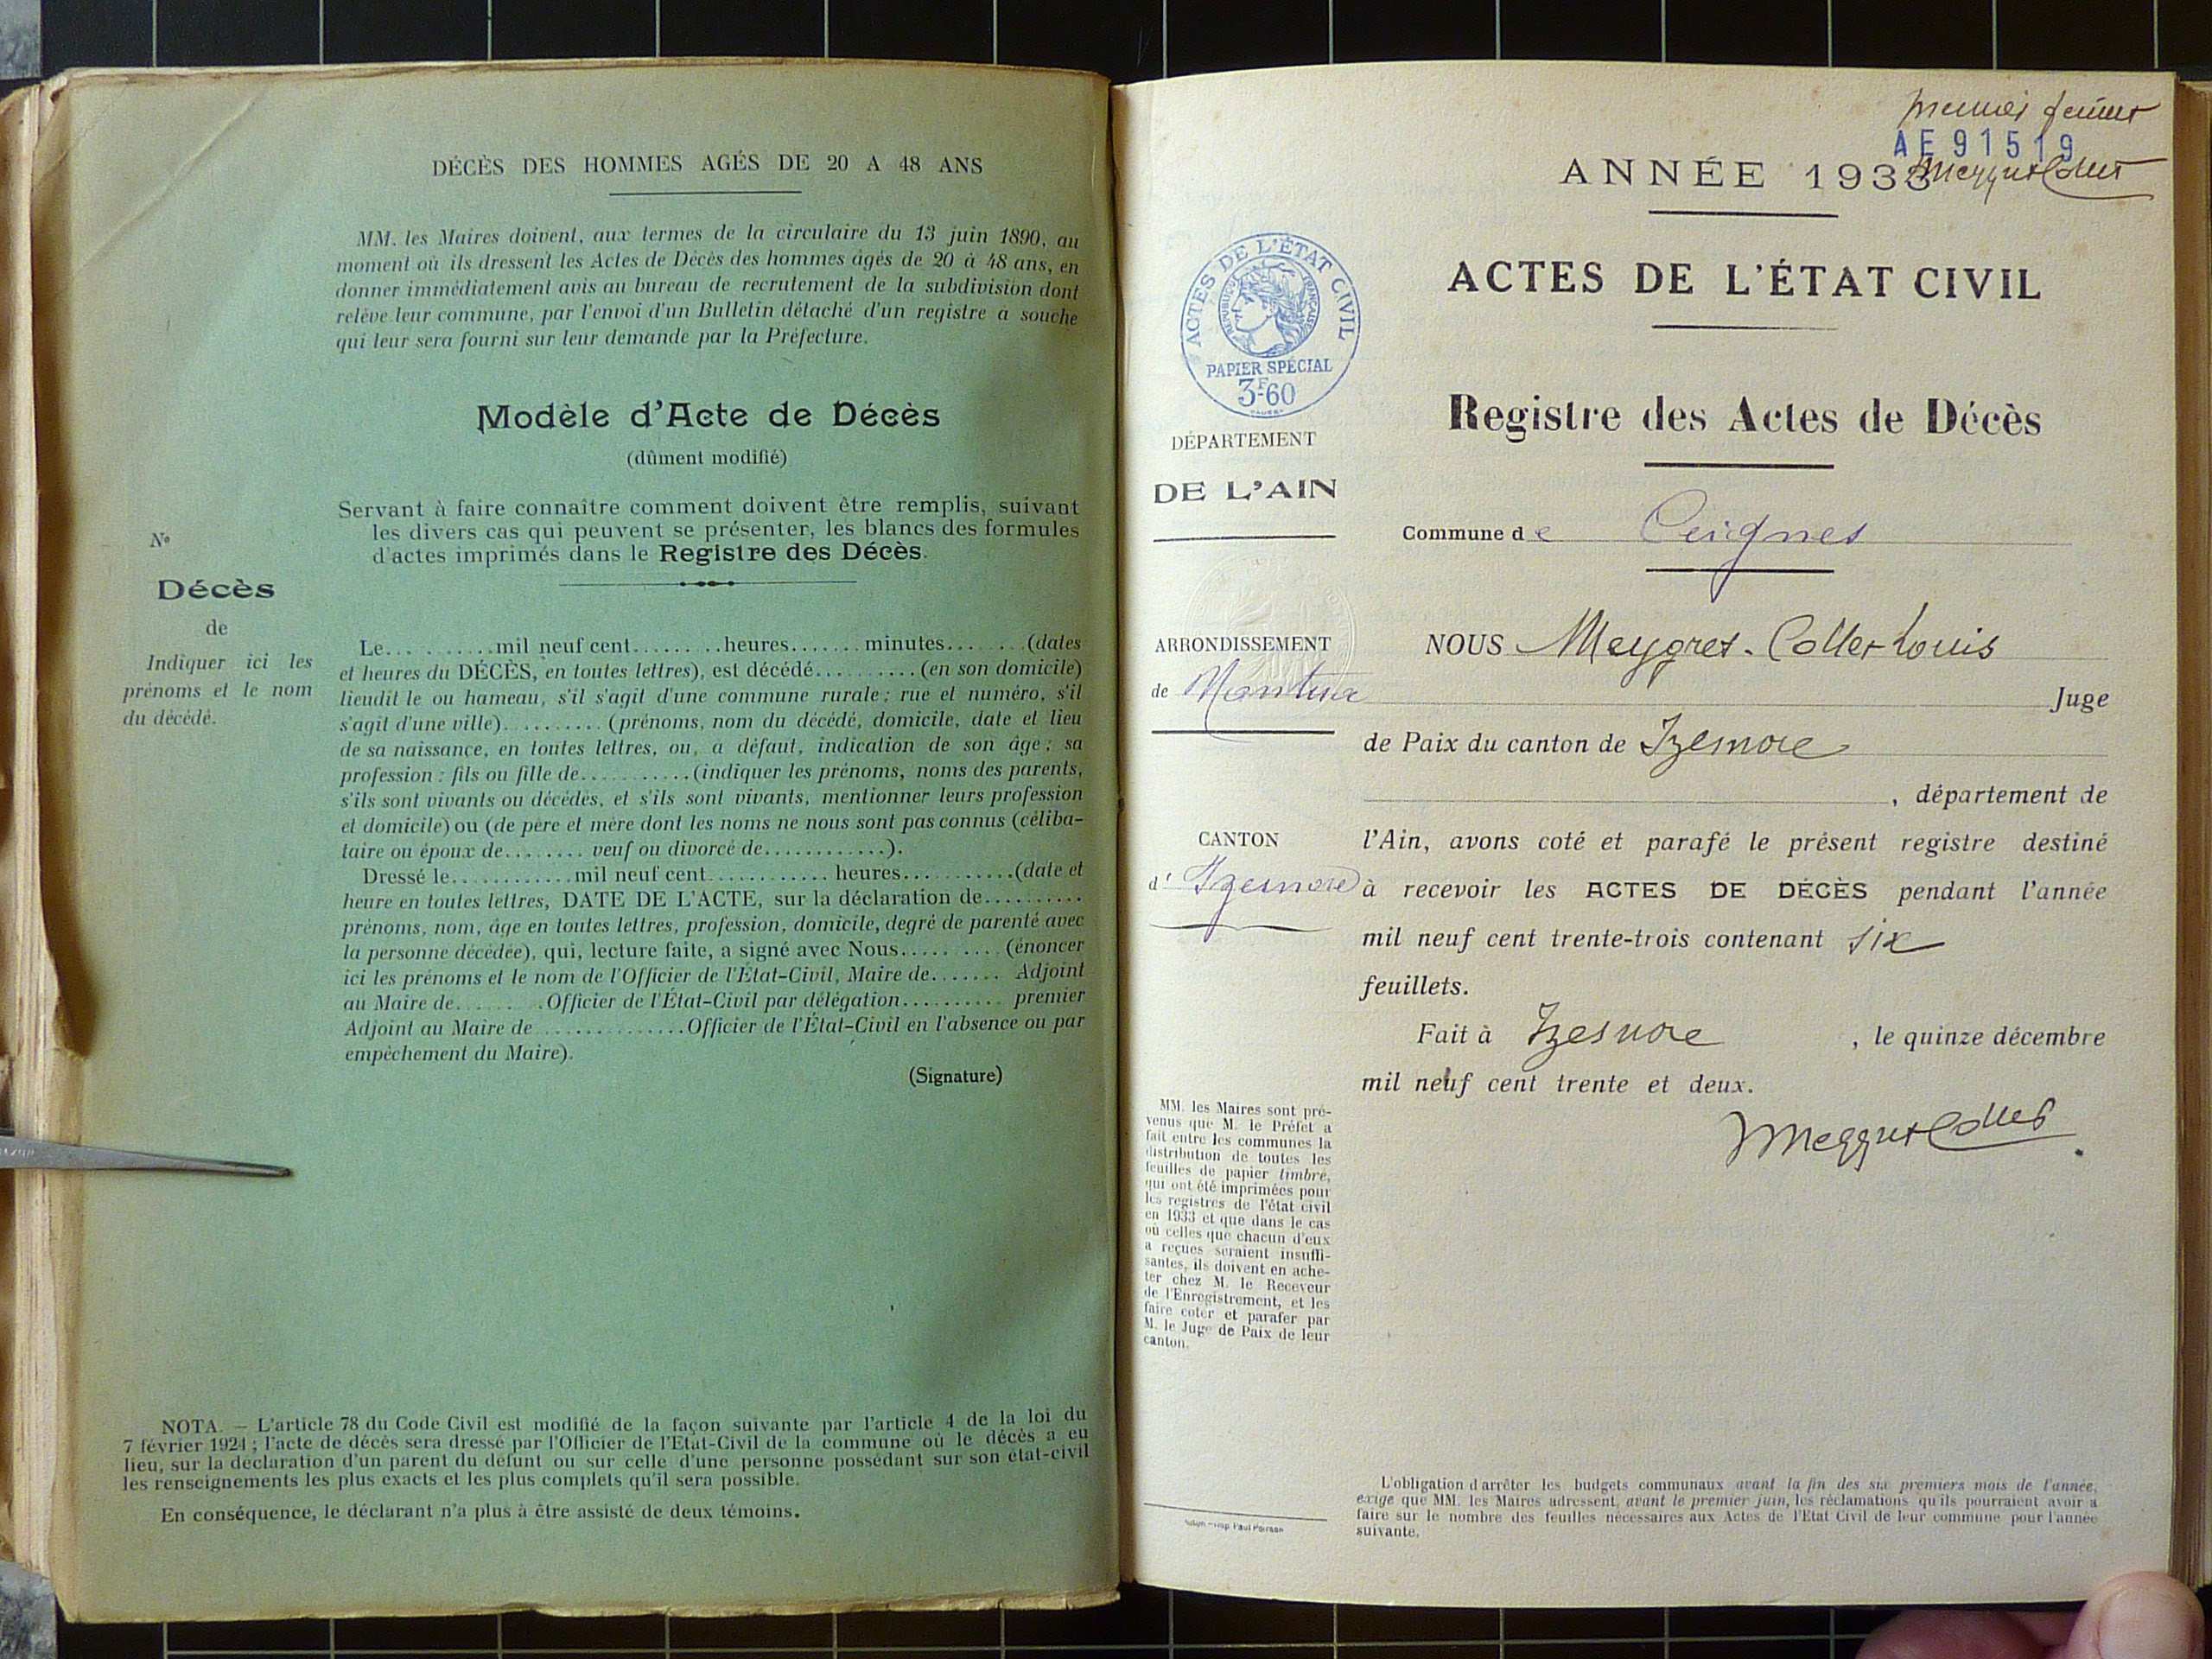 DÉCÈS DES HOMMES AGÉS DE 20 A 48 ANS
MM. les Maires doivent, aux termes de la circulaire du 13 juin 1890, au
moment où ils dressent les Actes de Décès des hommes âgés de 20 à 48 ans, en
donner immédiatement avis au bureau de recrutement de la subdivision dont
relève leur commune, par l'envoi d'un Bulletin détaché d'un registre a souche
qui leur sera fourni sur leur demande par la Préfecture.
Modèle d'Acte de Décès
(dûment modifié)
Servant à faire connaître comment doivent être remplis, suivant
les divers cas qui peuvent se présenter, les blancs des formules
d'actes imprimés dans le Registre des Décès.
No
Décès
de
Indiquer ici les
prénoms et le nom
du décédé.
Le..........mil neuf cent........heures.......minutes........(dates
et heures du DÉCÈS, en toutes lettres), est décédé..........(en son domicile)
lieudit le ou hameau, s'il s'agit d'une commune rurale; rue et numéro, s'il
s'agit d'une ville)..........(prénoms, nom du décédé, domicile, date et lieu
de sa naissance, en toutes lettres, ou, a défaut, indication de son âge; sa
profession : fils ou fille de..........(indiquer les prénoms, noms des parents,
s'ils sont vivants ou décédés, et s'ils sont vivants, mentionner leurs profession
et domicile) ou (de père et mère dont les noms ne nous sont pas connus (céliba-
taire ou époux de........ veuf ou divorcé de............).
Dressé le............mil neuf cent............ heures...........(date et
heure en toutes lettres, DATE DE L'ACTE, sur la déclaration de..........
prénoms, nom, âge en toutes lettres, profession, domicile, degré de parenté avec
la personne décédée), qui, lecture faite, a signé avec Nous..........(énoncer
ici les prénoms et le nom de l'Officier de l'État-Civil, Maire de....... Adjoint
au Maire de.........Officier de l'État-Civil par délégation.......... premier
Adjoint au Maire de...............Officier de l'État-Civil en l'absence ou par
empêchement du Maire).
(Signature)
NOTA. — L'article 78 du Code Civil est modifié de la façon suivante par l'article 4 de la loi du
7 février 1924; l'acte de décès sera dressé par l'Officier de l'Etat-Civil de la commune où le décès a eu
lieu, sur la déclaration d'un parent du défunt ou sur celle d'une personne possédant sur son état-civil
les renseignements les plus exacts et les plus complets qu'il sera possible.
En conséquence, le déclarant n'a plus à être assisté de deux témoins.
premier
AE 91519
ANNÉE 1933
Meygret Collet
ACTES DE L'ÉTAT CIVIL
Registre des Actes de Décès
Commune de Ceignes
ACTES DE L'ÉTAT CIVIL
RÉPUBLIQUE FRANÇAISE
PAPIER SPÉCIAL
3F60
DÉPARTEMENT
DE L'AIN
ARRONDISSEMENT
de Nantua
CANTON
d' Izernore
NOUS Meygret-Collet Louis
Juge
de Paix du canton de Izernore
, département de
l'Ain, avons coté et parafé le présent registre destiné
à recevoir les ACTES DE DÉCÈS pendant l'année
mil neuf cent trente-trois contenant six
feuillets.
Fait à Izernore , le quinze décembre
mil neuf cent trente et deux.
Meygret Collet
MM. les Maires sont pré-
venus que M. le Préfet a
fait entre les communes la
distribution de toutes les
feuilles de papier timbré,
qui ont été imprimées pour
les registres de l'état civil
en 1933 et que dans le cas
où celles que chacun d'eux
a reçues seraient insuffi-
santes, ils doivent en ache-
ter chez M. le Receveur
de l'Enregistrement, et les
faire coter et parafer par
M. le Juge de Paix de leur
canton.
Imp. Paul
L'obligation d'arrêter les budgets communaux avant la fin des six premiers mois de l'année,
exige que MM. les Maires adressent, avant le premier juin, les réclamations qu'ils pourraient avoir a
faire sur le nombre des feuilles nécessaires aux Actes de l'Etat Civil de leur commune pour l'année
suivante.